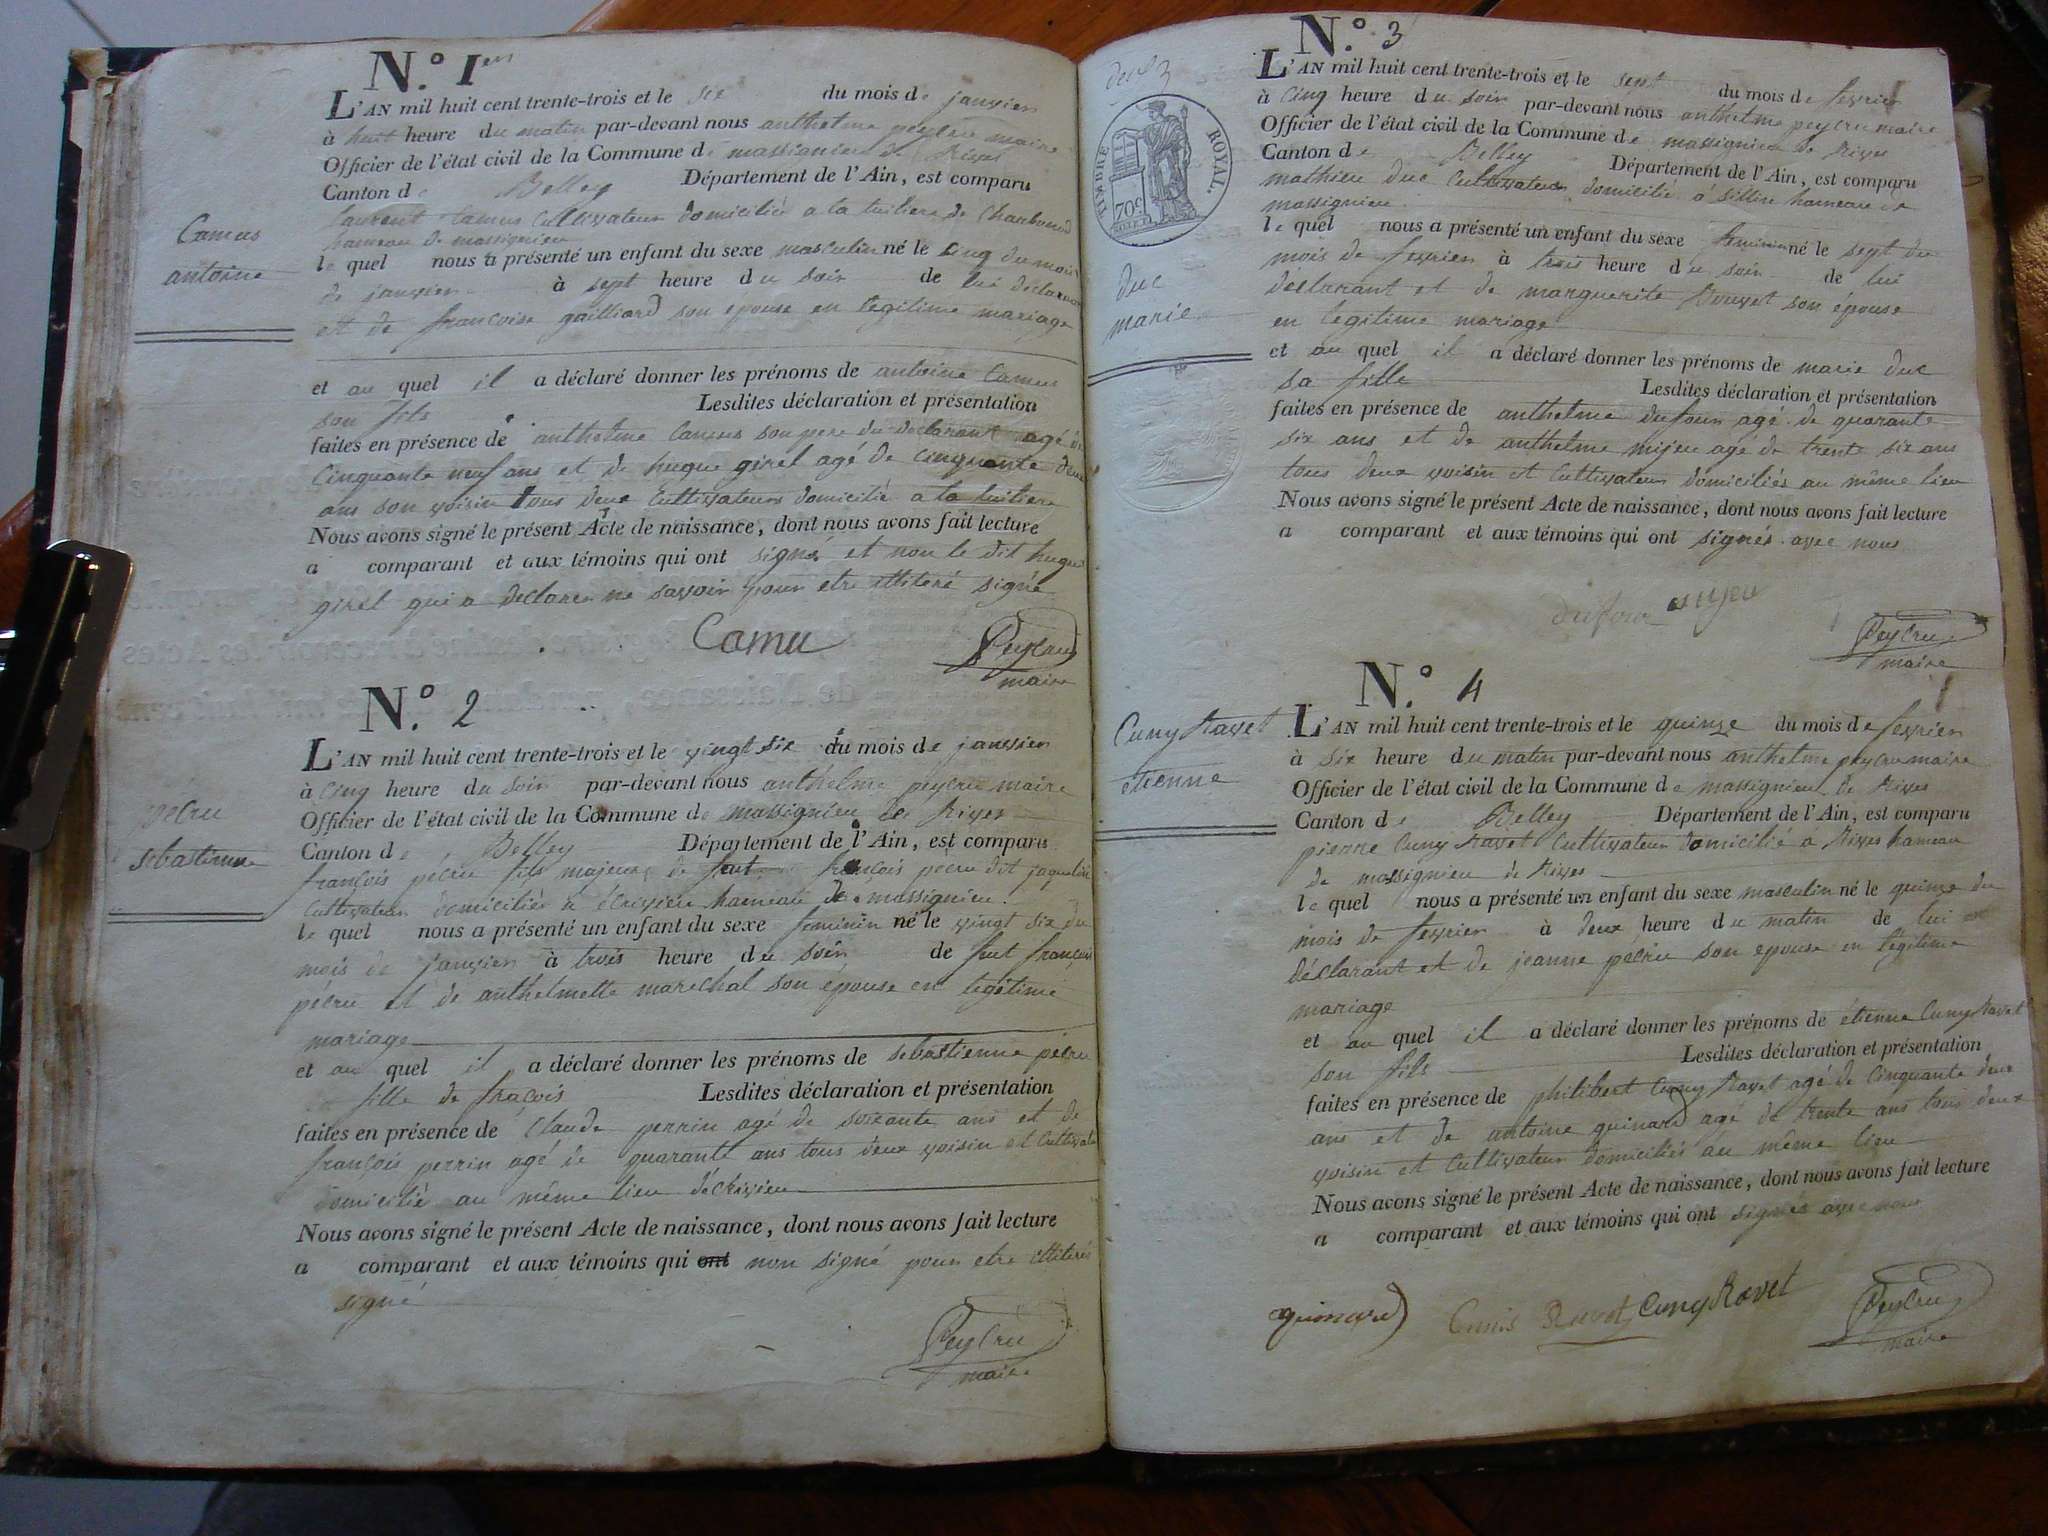 N.° 1er
L'AN mil huit cent trente-trois et le six du mois de janvier
à huit heure du matin par-devant nous anthelme peycru maire
Officier de l'état civil de la Commune de massignieu de Rives
Canton de Belley Département de l'Ain, est comparu
laurent Camus Cultivateur domicilié a la tuiliere de Charbonod
hameau de massignieu
Camus
antoine
le quel nous a présenté un enfant du sexe masculin né le cinq du mois
de janvier à sept heure du soir de lui declarant
et de francoise gailliard son epouse en legitime mariage
et au quel il a déclaré donner les prénoms de antoine Camus
son fils Lesdites déclaration et présentation
faites en présence de anthelme Camus son pere du declarant agé de
Cinquante neuf ans et de hugue girel agé de cinquante deux
ans son voisin tous deux Cultivateurs domicilié a la tuiliere
Nous avons signé le présent Acte de naissance, dont nous avons fait lecture
a comparant et aux témoins qui ont signé et non le dit hugue
girel qui a declarer ne savoir pour etre illiteré signé
Camu Peycru
maire
N.° 2
L'AN mil huit cent trente-trois et le vingt six du mois de janvier
à Cinq heure du soir par-devant nous anthelme peycru maire
Officier de l'état civil de la Commune de massignieu de Rives
Canton de Belley Département de l'Ain, est comparu
pécru
sebastienne
françois pécru fils majeur de feut françois pécru dit jaquelin
Cultivateur domicilié a écrivieu hameau de massignieu
le quel nous a présenté un enfant du sexe feminin né le vingt six du
mois de janvier à trois heure du soir de feut françois
pécru et de anthelmette marechal son épouse en legitime
mariage
et au quel il a déclaré donner les prénoms de sebastienne pécru
fille de fraçois Lesdites déclaration et présentation
faites en présence de Claude perrin agé de soixante ans et de
françois perrin agé de quarante ans tous deux voisin et Cultivate
domicilié au même lieu décrivieu
Nous avons signé le présent Acte de naissance, dont nous avons fait lecture
a comparant et aux témoins qui ont non signé pour etre illiterés
signé
Peycru
maire
N.° 3
TIMBRE ROYAL.
70c
duc
marie
L'AN mil huit cent trente-trois et le sept du mois de fevrier
à Cinq heure du soir par-devant nous anthelme peycru maire
Officier de l'état civil de la Commune de massignieu de Rives
Canton de Belley Département de l'Ain, est comparu
mathieu duc Cultivateur domicilié à sillin hameau de
massignieu
le quel nous a présenté un enfant du sexe feminin né le sept du
mois de fevrier à trois heure du soir de lui
déclarant et de marguerite Bouvet son épouse
en legitime mariage
et au quel il a déclaré donner les prénoms de marie duc
sa fille Lesdites déclaration et présentation
faites en présence de anthelme dufour agé de quarante
six ans et de anthelme mijeu agé de trente six ans
tous deux voisin et Cultivateur domiciliés au même lieu
Nous avons signé le présent Acte de naissance, dont nous avons fait lecture
a comparant et aux témoins qui ont signés avec nous
dufour mijeu
Peycru
maire
N.° 4
Cuny Ravet
étienne
L'AN mil huit cent trente-trois et le quinze du mois de fevrier
à six heure du matin par-devant nous anthelme peycru maire
Officier de l'état civil de la Commune de massignieu de Rives
Canton de Belley Département de l'Ain, est comparu
pierre Cuny Ravet Cultivateur domicilié a Rives hameau
de massignieu de Rives
le quel nous a présenté un enfant du sexe masculin né le quinze du
mois de fevrier à deux heure du matin de lui
déclarant et de jeanne pécru son epouse en legitime
mariage
et au quel il a déclaré donner les prénoms de étienne Cuny Ravet
son fils Lesdites déclaration et présentation
faites en présence de philibert Cuny Ravet agé de Cinquante deux
ans et de antoine guinard agé de trente ans tous deux
voisin et Cultivateur domiciliés au même lieu
Nous avons signé le présent Acte de naissance, dont nous avons fait lecture
a comparant et aux témoins qui ont signés avec nous
guinard Cunis Ravet Cuny Ravet Peycru
maire